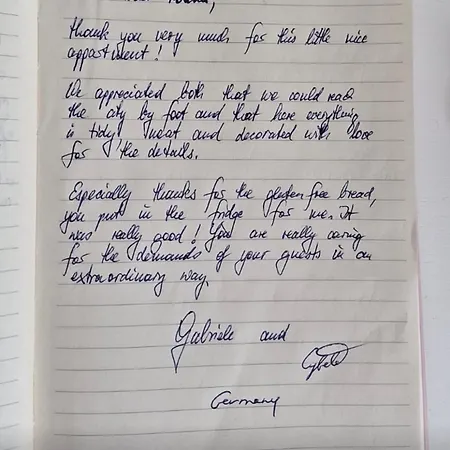 thank you very much for this little nice
appartment!
We appreciated both that we could reach
the city by foot and that here everything
is tidy, neat and decorated with love
for the details.
Especially thanks for the gluten free bread,
you put in the fridge for me. It
was really good! You are really caring
for the demands of your guests in an
extraordinary way.
Gabriele and
Germany